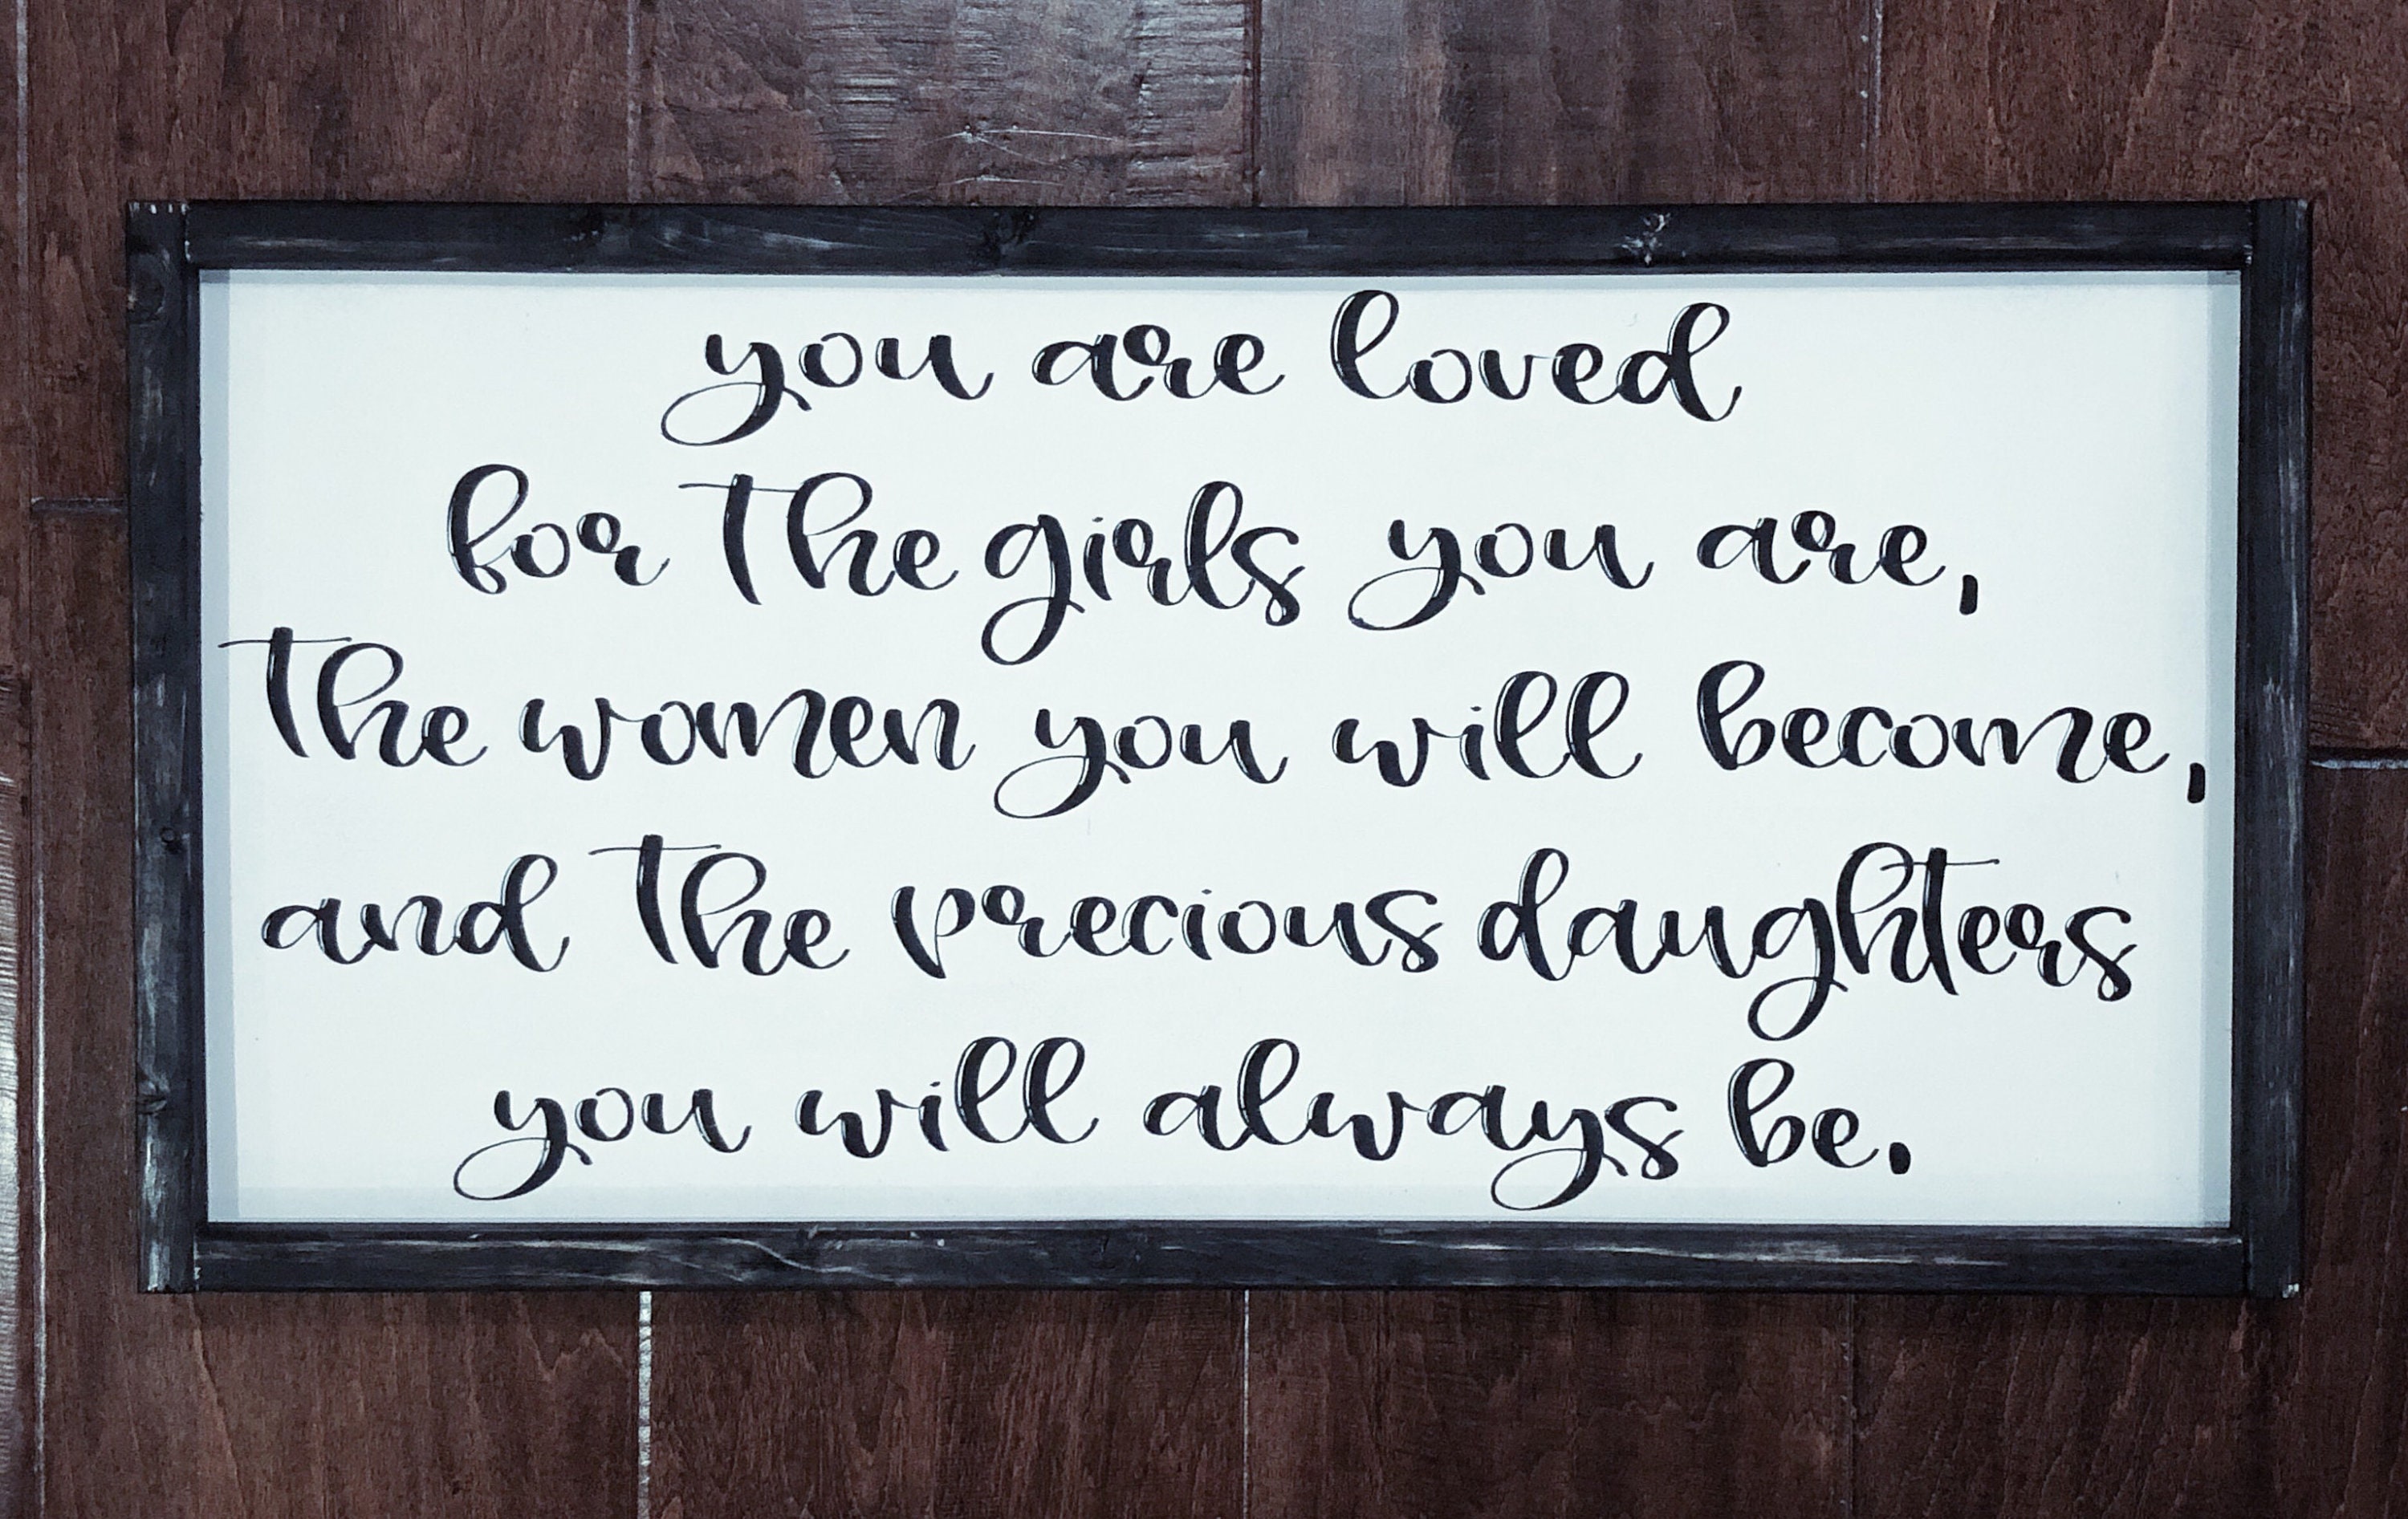 you are loved
for the girls you are,
the women you will become,
and the precious daughters
you will always be.